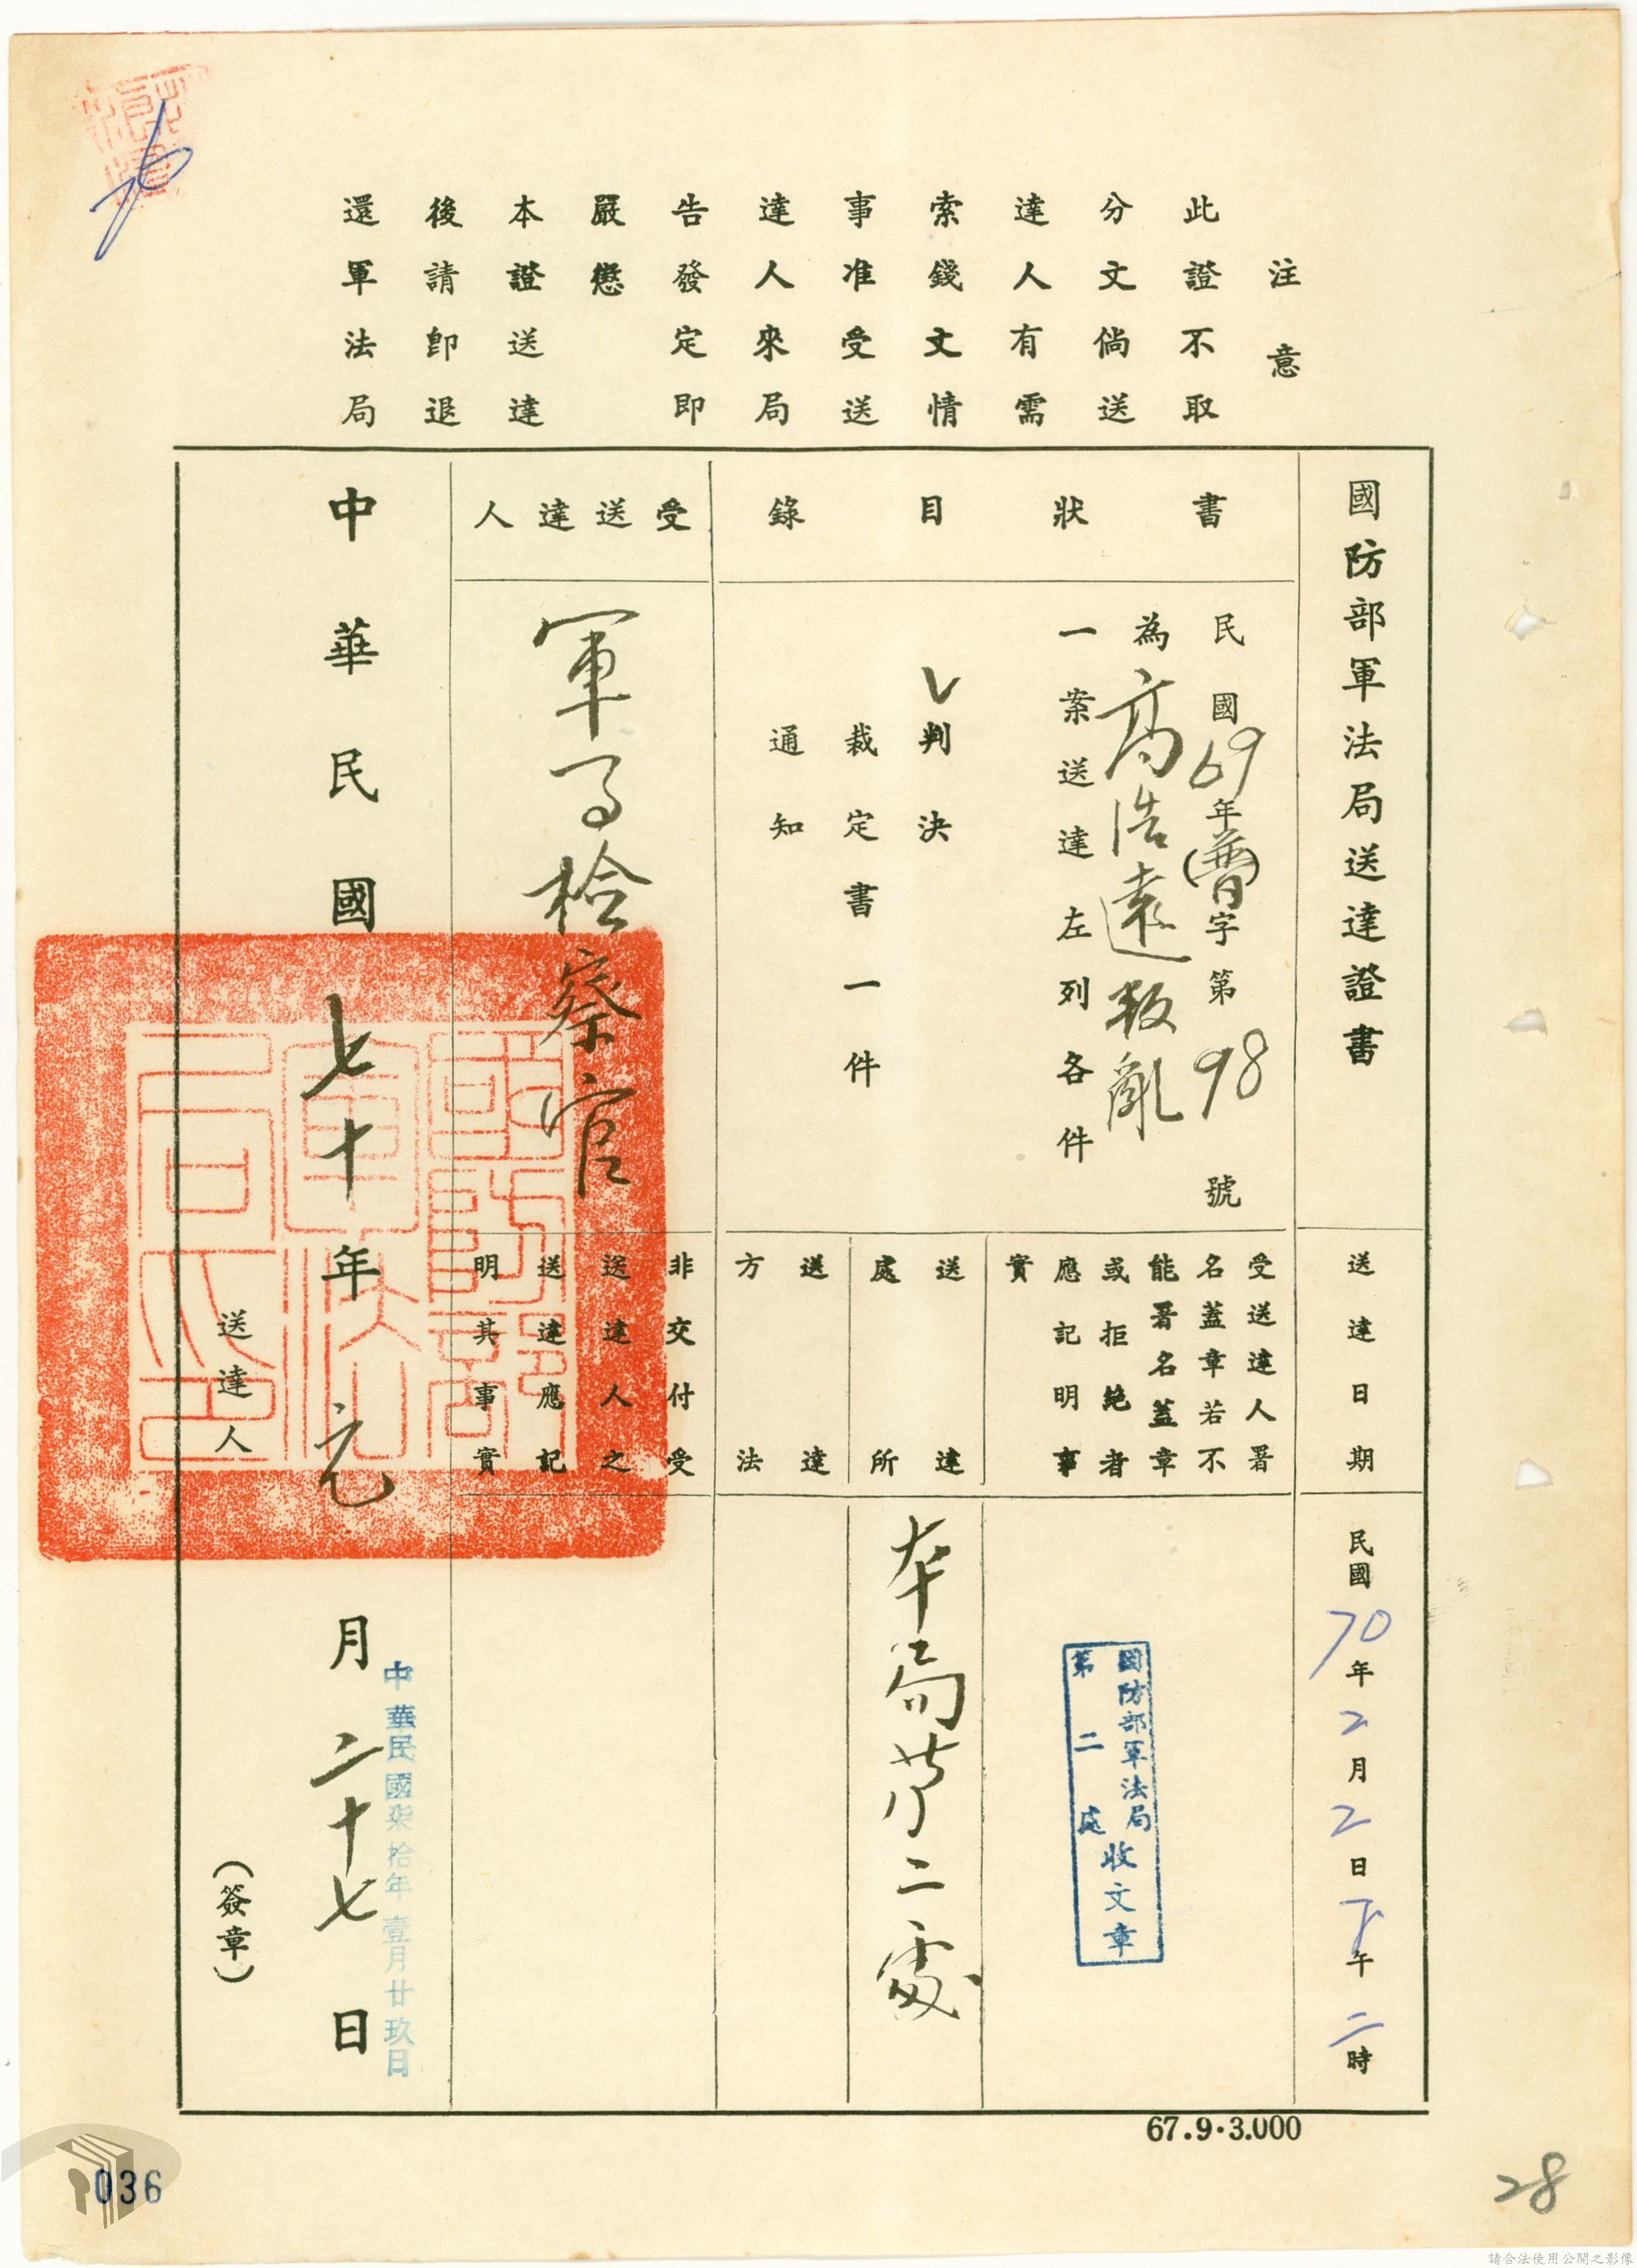 注意
此證不取
分文倘送
達人有需
索錢文情
事准受送
達人來局
告發定即
嚴懲
本證送達
後請即退
還軍法局
國防部軍法局送達證書
送達日期
民國70年2月2日下午二時
書狀目錄
民國69年(普)字第98號
為高浩遠叛亂
一案送達左列各件
✓判決
裁定書一件
通知
受送達人署
名蓋章若不
能署名蓋章
或拒絕者
應記明事
實
國防部軍法局
第二處
收文章
送達
處所
本局第二處
送達
方法
受送達人
軍事檢察官
非交付受
送達人之
送達應記
明其事實
中華民國七十年元月二十七日
中華民國柒拾年壹月廿玖日
國防部
軍法
局之印
送達人
(簽章)
67.9.3.000
036
28
請合法使用公開之影像